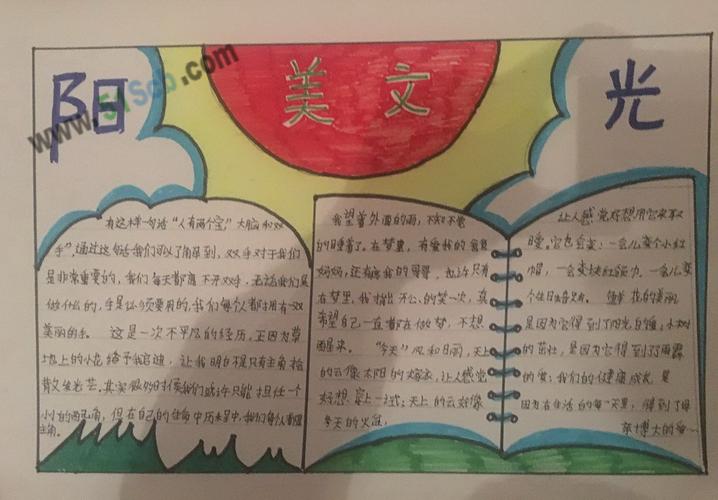 阳
美文
光
www.51Scb.com
"有这样一句话"人有两个宝"大脑和双
手",通过这句话我们可以了解到,双手对于我们
是非常重要的,我们每天都离不开双手,无论我们是
做什么的,手是必须要用的,我们每个人都拥有双
美丽的手。 这是一次不平凡的经历,正因为草
地上的小花给予我启迪,让我明白不是只有主角才能
散发光芒。其实很多时候我们或许只能担任一个
小小的配角,但在自己的生命中历来中,我们每个人都是
主角。
我望着外面的雨,不知不觉
的睡着了。在梦里,有爱我的爸爸
妈妈,还有疼我的哥哥,也许只有
在梦里,我才能开心的笑一次,真
希望自己一直都在做梦,不想
醒来。 "今天"风和日丽,天上
的云像太阳的嫁衣,让人感觉
好想穿上一试;天上的云好像
今天的火焰
让人感觉好想用它来
睡。它也会变:一会儿变个小红
帽,一会变块红领巾,一会儿变
个生日 鲜花的美丽
是因为它得到了阳光 小树
的茁壮,是因为它得到了雨露
的 我们的健康成长是
因为在生活的每一天里,得到了母
亲博大的爱一